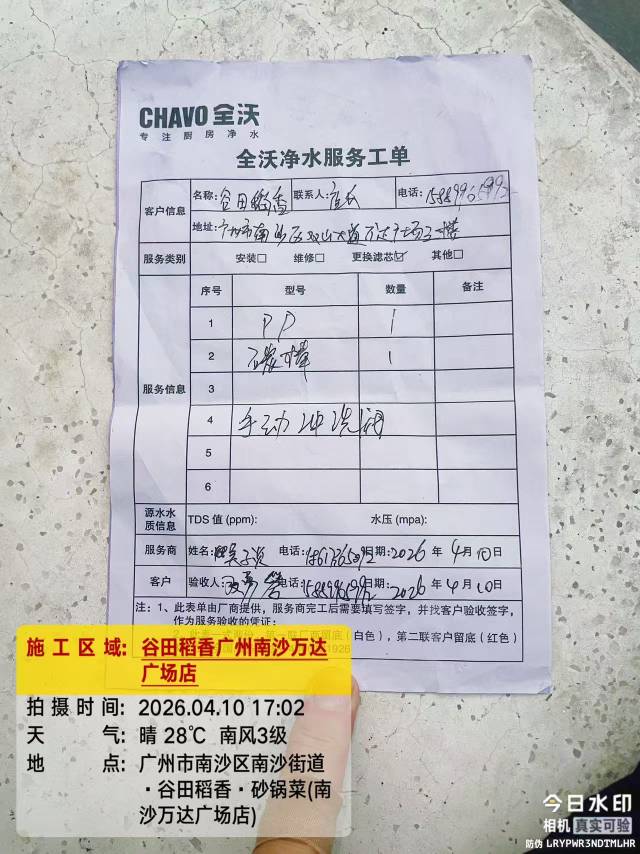 CHAVO 全沃
专注厨房净水
全沃净水服务工单
客户信息 名称: 谷田稻香 联系人: 电话:
地址: 广州市南沙区双山大道万达广场三楼
服务类别 安装□ 维修□ 更换滤芯☑ 其他□
服务信息 序号 型号 数量 备注
1 PP 1
2 碳棒 1
3
4 手动冲洗阀
5
6
源水水质信息 TDS 值 (ppm): 水压 (mpa):
服务商 姓名: 电话: 日期: 2026 年 4 月 10 日
客户 验收人: 电话: 15889965992 日期: 2026 年 4 月 10 日
注: 1、此表单由厂商提供，服务商完工后需要填写签字，并找客户验收签字，
作为服务验收的凭证;
第二联客户留底 (红色)
施工区域: 谷田稻香广州南沙万达
广场店
拍摄时间: 2026.04.10 17:02
天 气: 晴 28℃ 南风3级
地 点: 广州市南沙区南沙街道
·谷田稻香·砂锅菜(南
沙万达广场店)
今日水印
相机 真实可验
防伪 LRYPWR3NDTMLHR